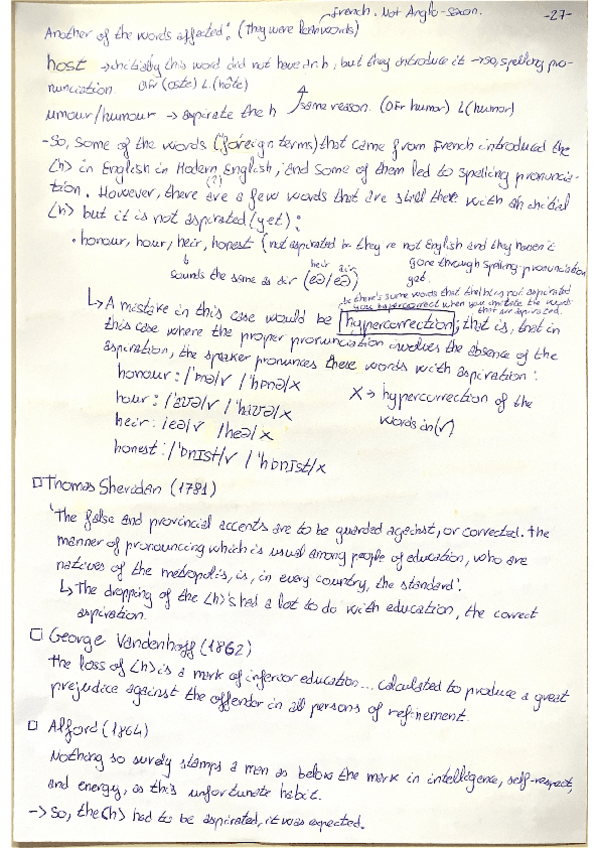 French. Not Anglo-saxon.
-27-
Another of the words affected: (They were loanwords)
host → initially this word did not have an h, but they introduce it → so, spelling pro-
nunciation. OFr (oste) L. (hôte)
umour/humour → aspirate the h
same reason. (OFr humor) L (humor)
- So, some of the words (foreign terms) that came from French introduced the
<h> in English in Modern English, and some of them led to spelling pronuncia-
tion. However, there are a few words that are still there with an initial
(?)
<h> but it is not aspirated (yet):
• honour, hour, heir, honest (not aspirated bc they're not English and they haven't
gone through spelling pronunciation
yet.
sounds the same as air (eə/eə)
heir air
bc there's some words that the h is not aspirated
you hypercorrect when you imitate the words
that are aspirated.
↳ A mistake in this case would be hypercorrection; that is, that in
this case where the proper pronunciation involves the absence of the
aspiration, the speaker pronunces these words with aspiration:
honour: /'ɒnə/√ /'hɒnə/x
hour: /'aʊə/√ /'haʊə/x
heir: /eə/√ /heə/x
honest: /'ɒnɪst/√ /'hɒnɪst/x
X → hypercorrection of the
words in (√)
□ Thomas Sheridan (1781)
'The false and provincial accents are to be guarded against, or corrected. The
manner of pronouncing which is usual among people of education, who are
natives of the metropolis, is, in every country, the standard'.
↳ The dropping of the <h>'s had a lot to do with education, the correct
aspiration.
□ George Vandenhoff (1862)
The loss of <h> is a mark of inferior education... calculated to produce a great
prejudice against the offender in all persons of refinement.
□ Alford (1864)
Nothing so surely stamps a man as below the mark in intelligence, self-respect,
and energy, as this unfortunate habit.
-> So, the <h> had to be aspirated, it was expected.